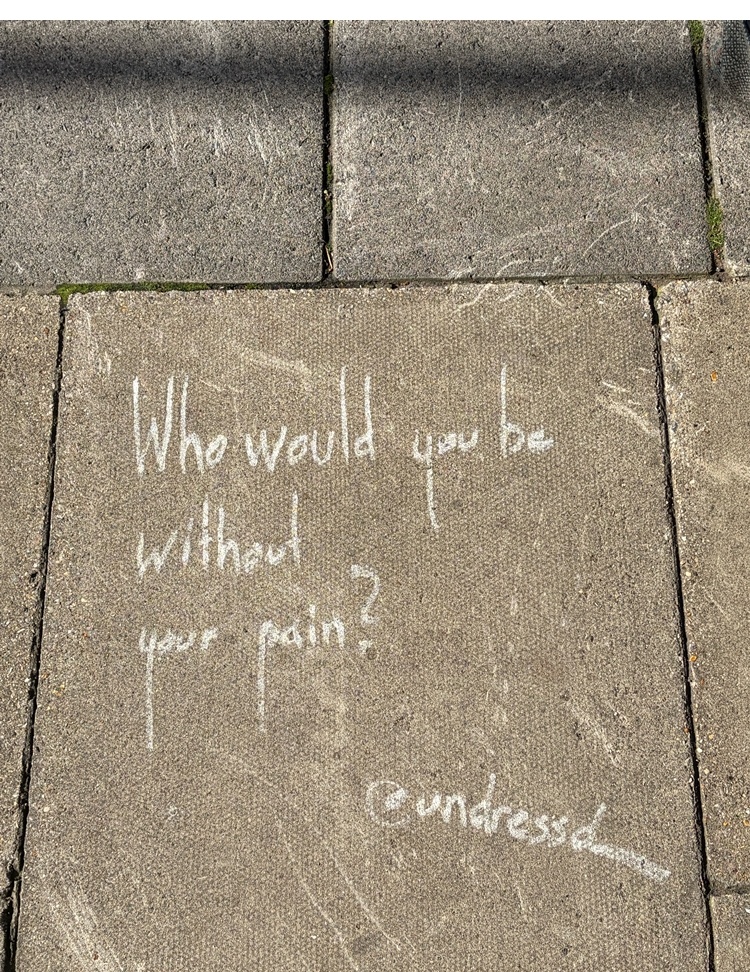 Who would you be
without
your pain?
@undressd_